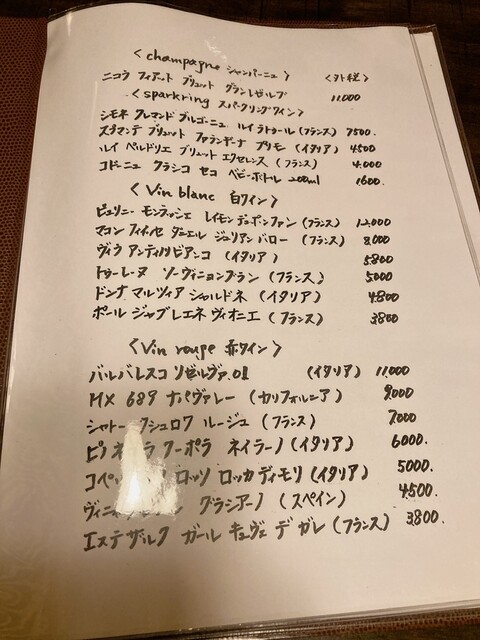 <champagne シャンパーニュ> <外税>
ニコラ フィアット ブリュット グランレゼルブ 11,000
<sparkring スパークリングワイン>
シモネ クレマンド ブルゴーニュ ルイ ラトゥール (フランス) 7500.
スタマンテ ブリュット ファランギーナ プリモ (イタリア) 4500
ルイ ペルドリエ ブリュット エクセレンス (フランス) 4,000
コドーニュ クラシコ セコ ベビーボトル 200ml 1600.
<Vin blanc 白ワイン>
ピュリニー モンラッシェ レイモン デュポンファン (フランス) 12,000
マコン フュイッセ ダニエル ジュリアン バロー (フランス) 8,000
ヴィラ アンティノリ ビアンコ (イタリア) 5800
トゥーレーヌ ソーヴィニョンブラン (フランス) 5000
ドンナ マルツィア シャルドネ (イタリア) 4800
ポール ジャブレエネ ヴィオニエ (フランス) 3800
<Vin roupe 赤ワイン>
バルバレスコ リゼルヴァ.01 (イタリア) 11,000
MX 689 ナパヴァレー (カリフォルニア) 9,000
シャトー クシュロワ ルージュ (フランス) 7,000
ピノ ネ ラ クーポラ ネイラーノ (イタリア) 6000.
コペ ロッソ ロッカ ディモリ (イタリア) 5000.
ヴィニ グラシアーノ (スペイン) 4500.
エステザルク ガール キュヴェ デ ガレ (フランス) 3,800.